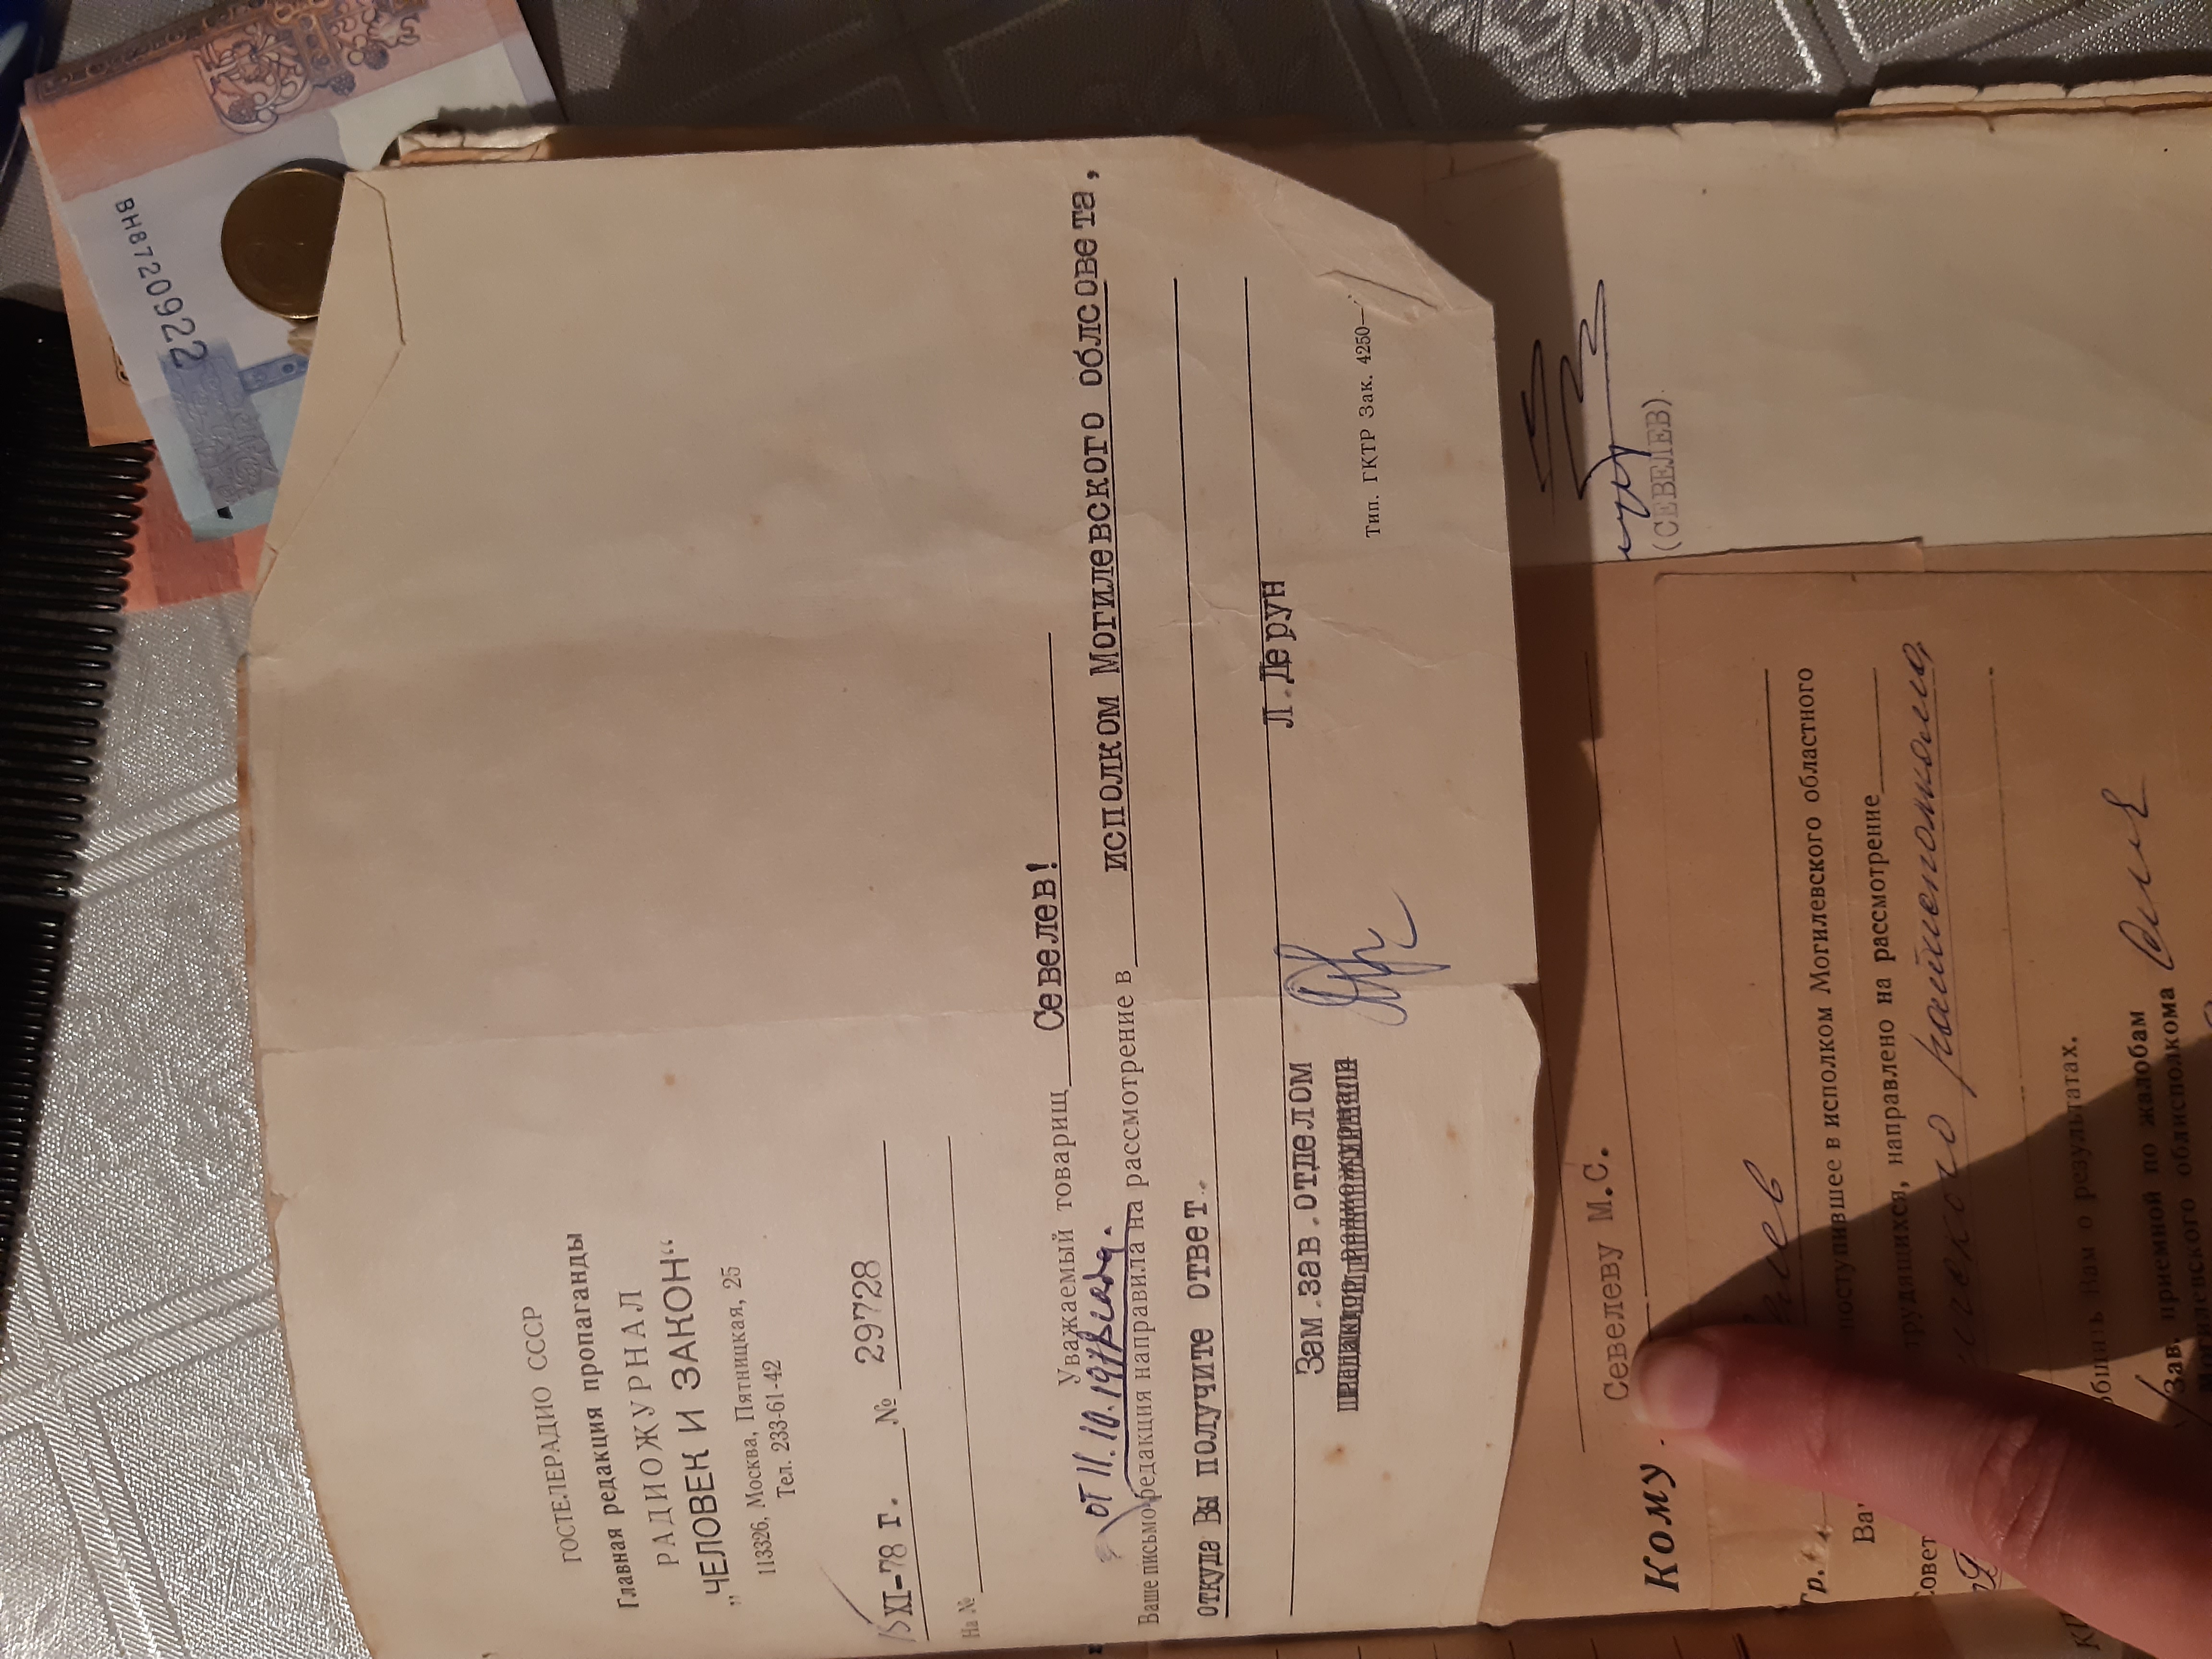 ГОСТЕЛЕРАДИО СССР
Главная редакция пропаганды
РАДИОЖУРНАЛ
„ЧЕЛОВЕК И ЗАКОН“
113326, Москва, Пятницкая, 25
Тел. 233-61-42
15 XI-78 г. № 29728
На №
Уважаемый товарищ Севелев!
от 11.10.1978
Ваше письмо редакция направила на рассмотрение в исполком Могилевского облсовета,
откуда Вы получите ответ.
Зам.зав.отделом Л.Дерун
Тип. ГКТР Зак. 4250—
(СЕВЕЛЕВ)
Севелеву М.С.
Кому
Гр.
поступившее в исполком Могилевского областного
трудящихся, направлено на рассмотрение
райисполкома
Вам о результатах.
Зав. приемной по жалобам
Могилевского облисполкома
ВН8720922